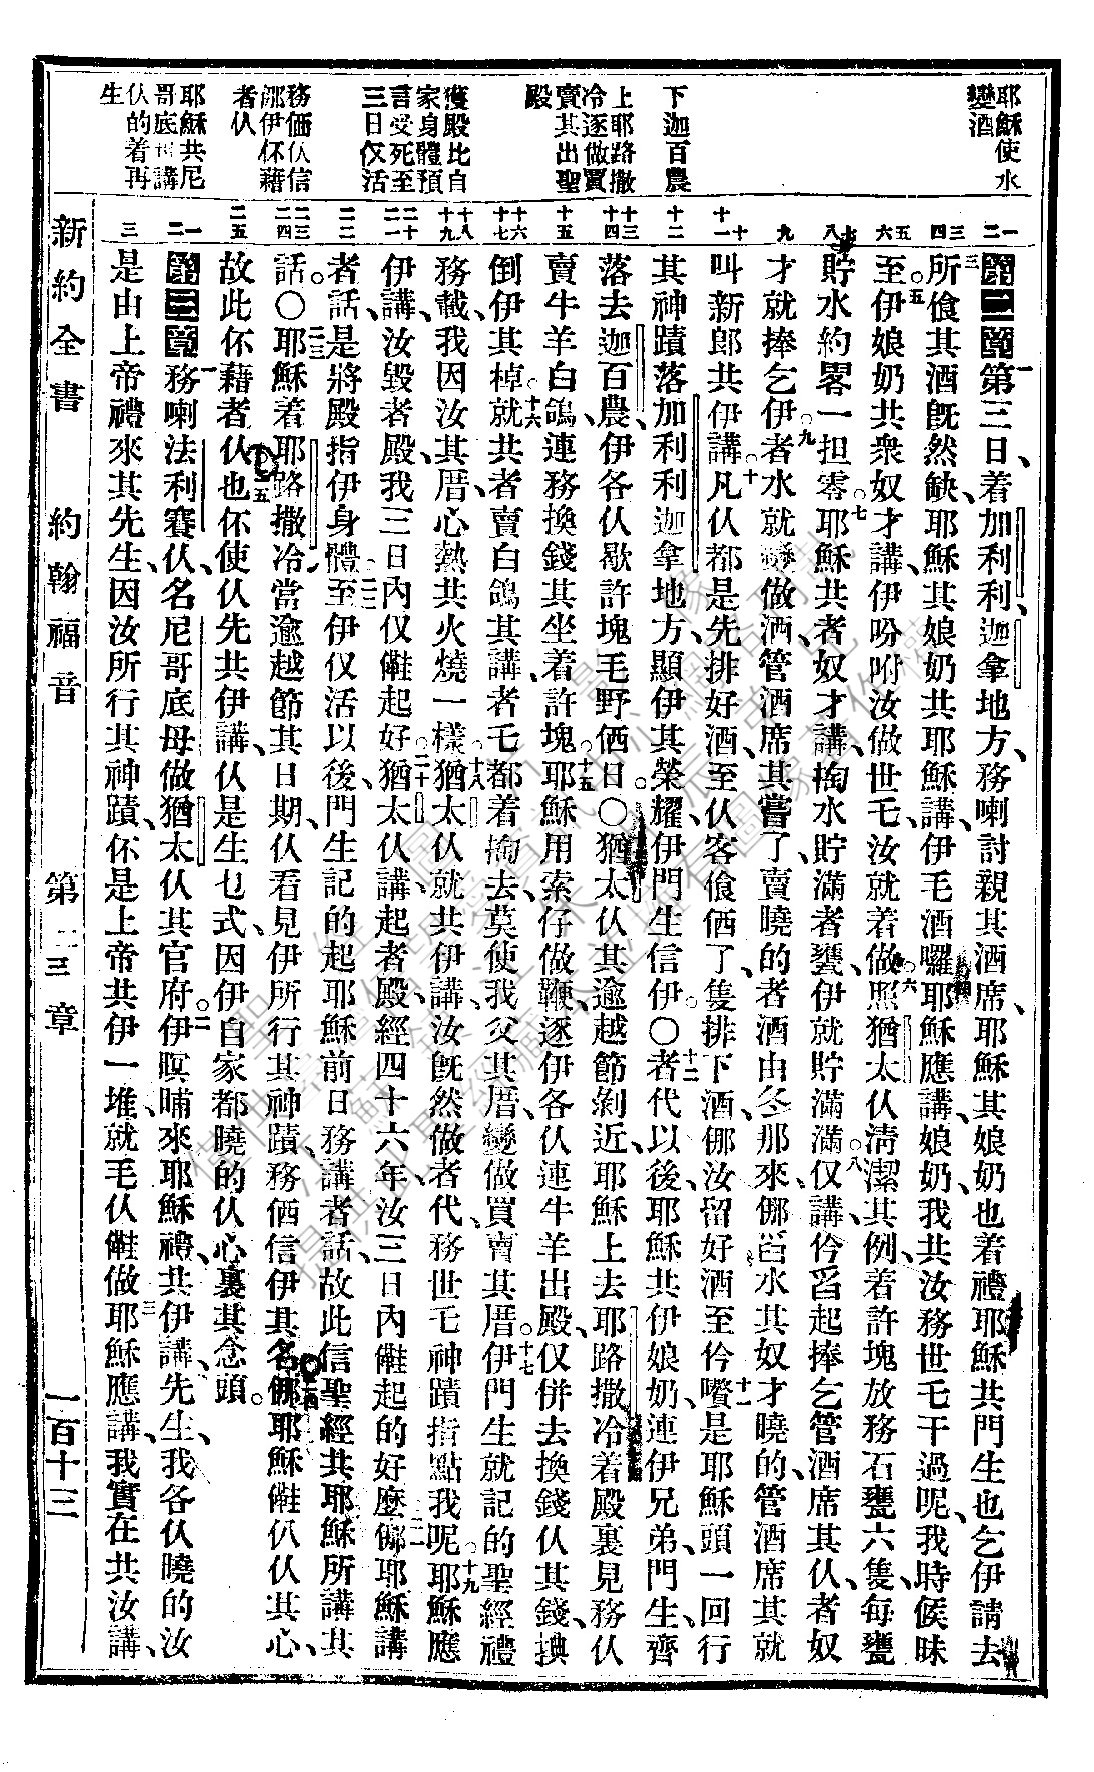 耶穌使水
變酒
下迦百農
上耶路撒
冷逐做買
賣其出聖
殿
獲殿比自
家身體預
言受死至
三日仅活
務価仈信
伓藉
者仈
耶穌共尼
哥底母講
仈的着再
生
一 二
三 四
五 六
七 八
九
十 十一
十二
十三 十四
十五
十六 十七
十八 十九
二十 二一
二二
二三 二四
二五
一 二
三
第二章 第三日着加利利迦拿地方務喇討親其酒席耶穌其娘奶也着禮耶穌共門生也乞伊請去
所食其酒旣然缺耶穌其娘奶共耶穌講伊毛酒囉耶穌應講娘奶我共汝務世乇干過呢我時候昧
至伊娘奶共衆奴才講伊吩咐汝做世乇汝就着做照猶太仈淸潔其例着許塊放務石甕六隻每甕
貯水約畧一担零耶穌共者奴才講掏水貯滿者甕伊就貯滿滿仅講伶舀起捧乞管酒席其仈者奴
才就捧乞伊者水就變做酒管酒席其嘗了賣曉的者酒由冬那來倻舀水其奴才曉的管酒席其就
叫新郎共伊講凡仈都是先排好酒至仈客食価了隻排下酒倻汝留好酒至伶嚽是耶穌頭一回行
其神蹟落加利利迦拿地方顯伊其榮耀伊門生信伊〇者代以後耶穌共伊娘奶連伊兄弟門生齊
落去迦百農伊各仈歇許塊毛野価日〇猶太仈其逾越節剝近耶穌上去耶路撒冷着殿裏見務仈
賣牛羊白鴿連務換錢其坐着許塊耶穌用索仔做鞭逐伊各仈連牛羊出殿仅併去換錢仈其錢㨲
倒伊其棹就共者賣白鴿其講者乇都着掏去莫使我父其厝變做買賣其厝伊門生就記的聖經禮
務載我因汝其厝心熱共火燒一樣猶太仈就共伊講汝旣然做者代務世乇神蹟指點我呢耶穌應
伊講汝毀者殿我三日內仅㑼起好猶太仈講起者殿經四十六年汝三日內㑼起的好麽倻耶穌講
者話是將殿指伊身體至伊仅活以後門生記的起耶穌前日務講者話故此信聖經共耶穌所講其
話〇耶穌着耶路撒冷當逾越節其日期仈看見伊所行其神蹟務価信伊其名倻耶穌㑼仈仈其心
故此伓藉者仈也伓使仈先共伊講仈是生乜式因伊自家都曉的仈心裏其念頭
第三章 務喇法利賽仈名尼哥底母做猶太仈其官府伊暝晡來耶穌禮共伊講先生我各仈曉的汝
是由上帝禮來其先生因汝所行其神蹟伓是上帝共伊一堆就毛仈㑼做耶穌應講我實在共汝講
新約全書 約翰福音 第二三章 一百十三